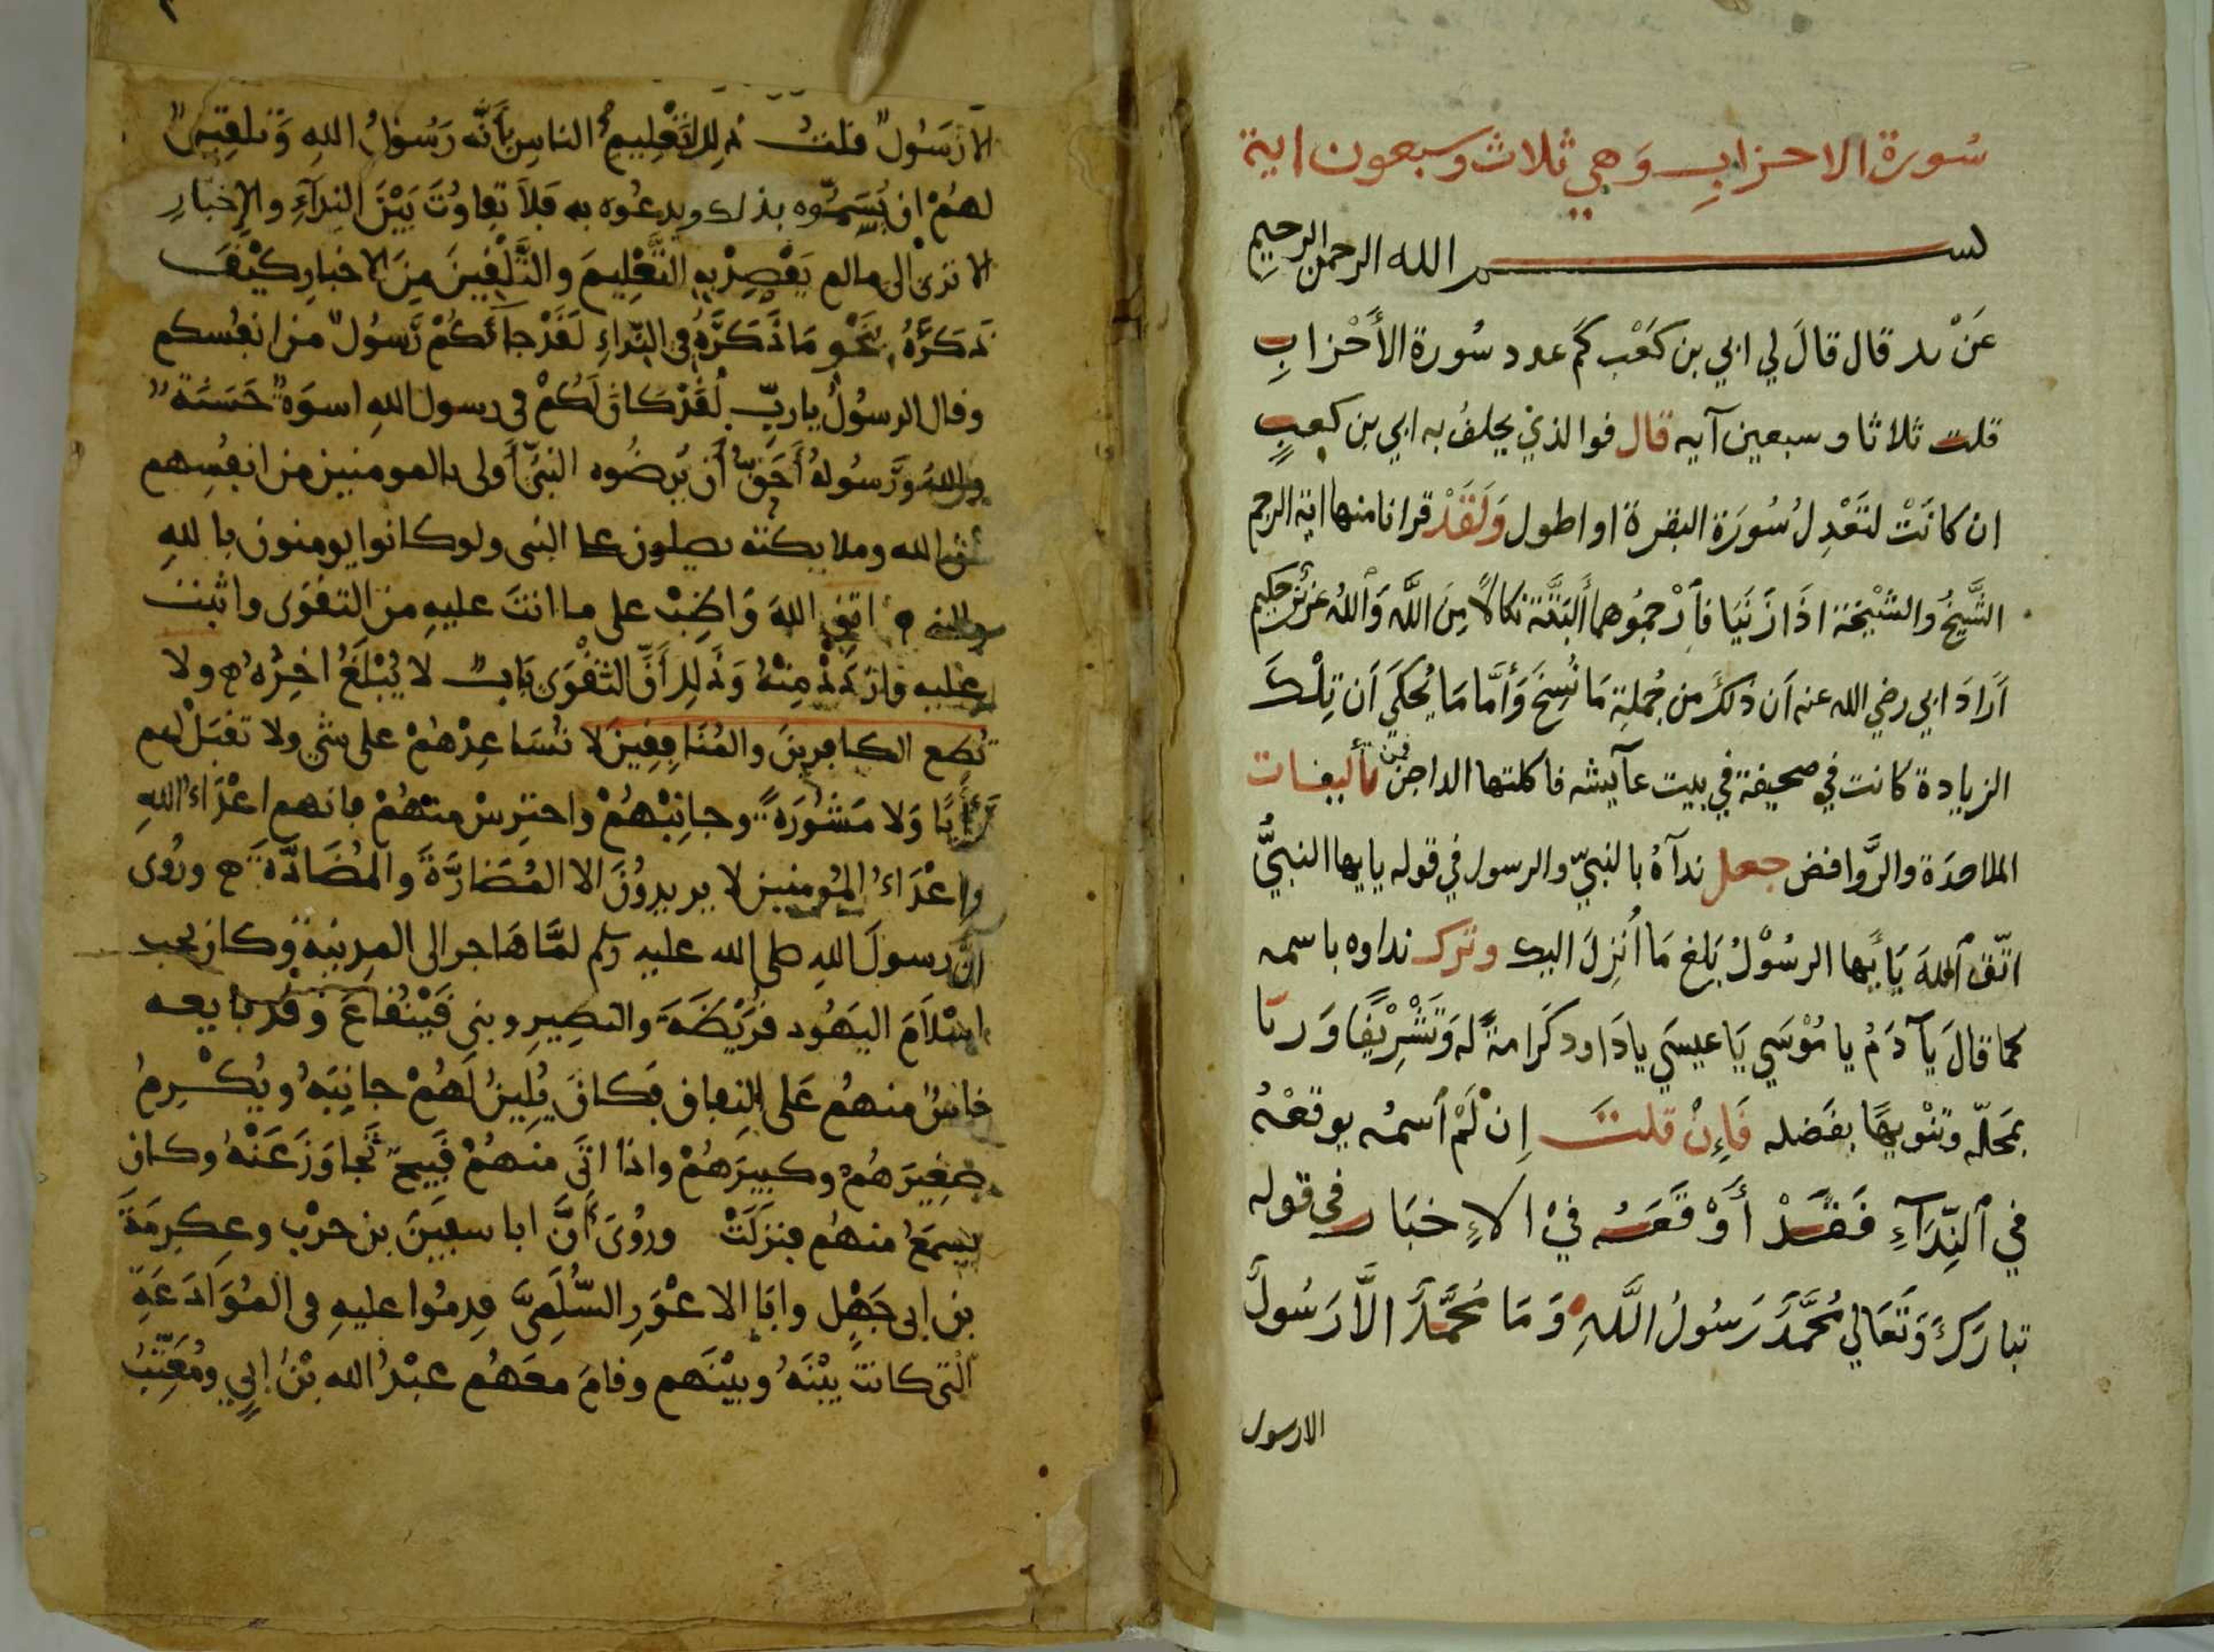 سُورة الاحزابِ وَهي ثلاث وسبعون اية
بسم الله الرحمن الرحيم
عَنْ زر قال قالَ لي ابي بن كَعْب كَم عدد سُورة الأَحْزابِ
قلت ثلاثا وسبعين آيه قال فوالذي يحلفُ به ابي بن كعبٍ
ان كانَتْ لتَعْدِلُ سُورَة البقرة او اطول وَلَقَدْ قرانا منها اية الرجم
الشَّيخُ والشَيْخة اذَا زَنَيَا فأرْجمُوهما أَلبَتَّة نكالاً مِنَ اللَّه وَاللهُ عَزيز حَكِيم
أرَادَ ابي رضي الله عنه أن ذلكَ من جُملةِ مَا نُسِخَ وَأمَّا مَا يُحكَي أن تِلْكَ
الزيادة كانت في صحيفة في بيت عآيشه فاكلتها الداجن فمن تأليفات
الملاحدَة والرَّوافض جعل ندآهُ بالنبيّ والرسول في قوله يايها النبيُّ
اتّق اللهَ يَايُّها الرسُوْلُ بَلغ مَا أُنْزِلَ اليك وترك نداوه باسمه
كما قالَ يَا آدَمُ يا مُوْسَي يَا عيسَي يا دَاود كَرامةً له وَتَشْرِيْفًا وَربا
بمَحلّه وتَنْويهًا بفَضله فَإِنْ قلتَ اِنْ لَمْ اسمه يوقعْهُ
في النِّدَآءِ فَقَدْ أَوْقَعَهُ فيْ الاِخبَار في قوله
تبارَكَ وَتَعَالي مُحَمَّدٌ رَسُولُ اللَّهِ وَمَا مُحَمَّدٌ الَّا رَسُولٌ
الارسول
الا رَسُولٌ قلتُ ذلك لتَعْلِيمِ الناسِ بأنَّه رَسُولُ اللهِ وَتلقينٌ
لهُمْ ان يُسَمُّوه بذلك ويدعُوه به فَلَا تفاوُتَ بَيْنَ النِدَآءِ والإخبَارِ
الا ترىٰ الى مالم يَقْصِدْ به التَّعْلِيمَ والتَّلْقِينَ مِنَ الاخبارِ كَيْفَ
ذَكَرَهُ بنَحْوِ مَا ذَكَرَهُ فى النِّداءِ لَقَدْ جآئكُمْ رَّسُولٌ من انفُسكم
وقال الرسُولُ ياربِّ لَقَدْ كانَ لَكُمْ فى رسول اللهِ اسوَةٌ حَسَنَةٌ
واللهُ وَرَسُولهُ أَحَقُّ أن يُرضُوه النبىّ أولى بالمومنين من انفُسِهم
ان الله وملايكته يصلون على النبى ولو كانوا يومنون باللهِ
والنبى اتقِ اللهَ وَاظِبْ على ما انتَ عليهِ من التقوَى واثبت
عليه وازدَدْ مِنْهُ وَذَلِك أنَّ التَّقْوَى بَابٌ لا يُبْلَغُ اخِرُهُ ولا
تُطع الكافرينَ والمُنَافِقِينَ لا تُسَاعِدْهُمْ على شَيْءٍ ولا تقبَلْ لهم
رَأيًا وَلا مَشُورَةً وجانِبْهُمْ واحترِسْ منهُمْ فانهم اعْدَاءُ اللهِ
واعْدَاءُ المُومنين لا يريدُونَ الا المُضَارَّةَ والمُضَادَّةَ ورُوِى
أنَّ رسولَ اللهِ صلى الله عليه وسلم لمَّا هَاجر الى المدِينةِ وكان يحب
اسْلَامَ اليَهُود قُرَيْضَةَ والنضِيرِ وبنى قَيْنُقاعَ وَقد بايعه
ناسٌ منهُمْ عَلى النِفاقِ فكانَ يُلِينُ لَهُمْ جانِبَهُ ويُكْرِمُ
صَغِيرَهُمْ وكبيرَهُمْ واذا اتَى منهُمْ قَبِيحٌ تَجاوَزَ عَنْهُ وكان
يسمَعُ منهُم فنزَلَتْ ورُوِىَ أنَّ ابا سفيَنَ بن حَرْبٍ وعِكرِمَةَ
بن ابى جَهْلٍ وابَا الاعْوَرِ السُّلَمِىَّ قدِمُوا عليهِ فى المُوَادَعَةِ
الّتى كانتْ بيْنَهُ وبيْنَهم وقامَ معَهُم عبْدُ الله بْنُ ابيٍ ومُعَتِّبُ